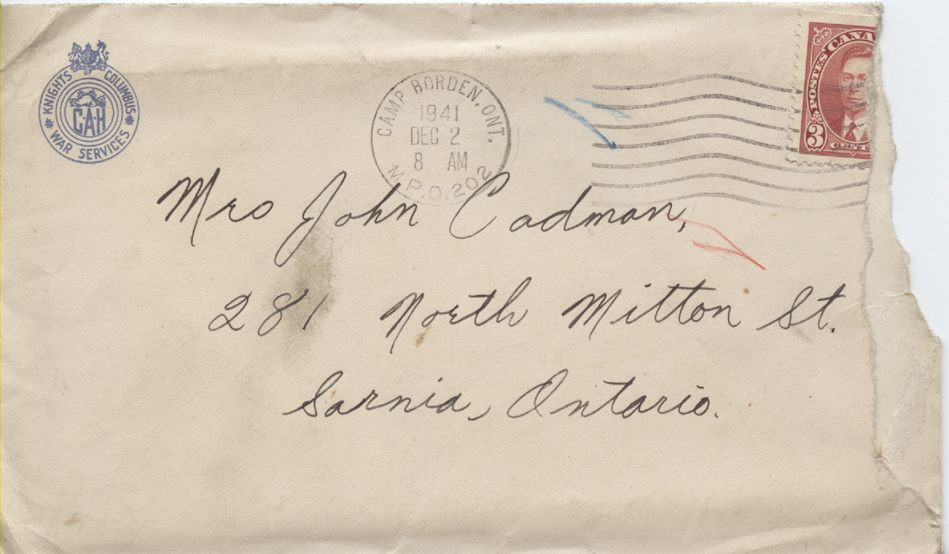 KNIGHTS OF COLUMBUS
CAH
WAR SERVICES
CAMP BORDEN, ONT.
1941
DEC 2
8 AM
M.P.O. 202
POSTES CANA
3
Mrs John Cadman,
281 North Mitton St.
Sarnia, Ontario.